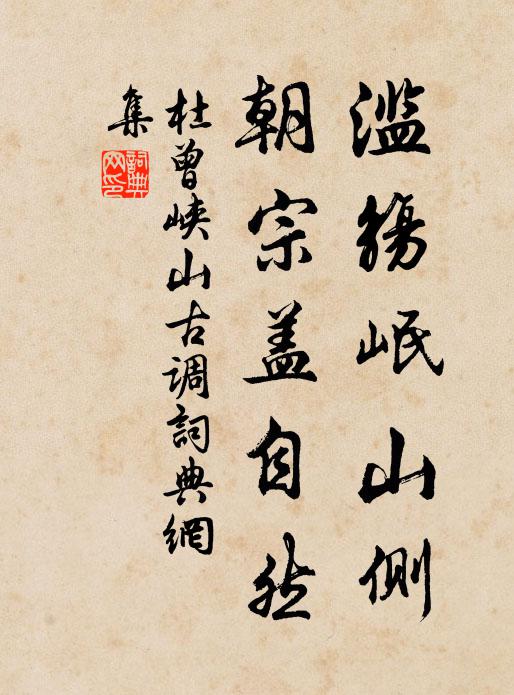 滥觞岷山侧
朝宗盖自然
杜曾峡山古调詞典網
集
詞典
网印